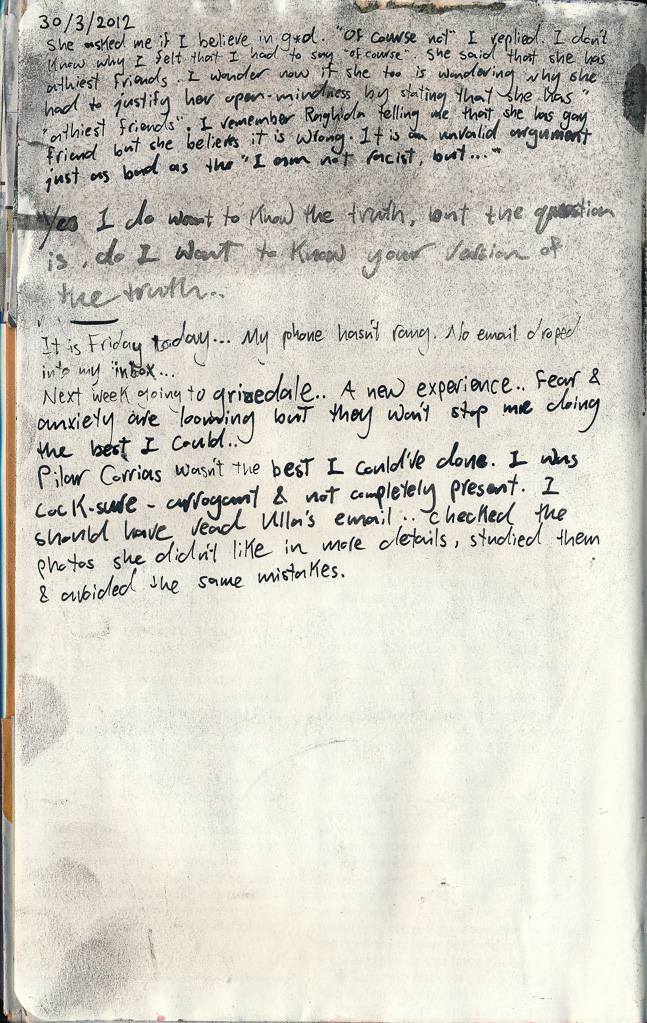 30/3/2012
She asked me if I believe in g*d. "Of course not" I replied. I don't
know why I felt that I had to say "of course". She said that she has
athiest friends. I wander now if she too is wandering why she
had to justify her open-mindness by stating that she has "
"athiest friends". I remember Raghda telling me that she has gay
friend but she believes it is wrong. It is an unvalid argument
just as bad as the "I am not racist, but..."
Yes I do want to know the truth, but the question
is, do I want to know your version of
the truth..
It is Friday today... My phone hasn't rang. No email droped
into my inbox...
Next week going to grizedale.. A new experience.. Fear &
anxiety are looming but they won't stop me doing
the best I could..
Pilar Corrias wasn't the best I could've done. I was
cock-sure - arrogant & not completely present. I
should have read Ulla's email.. checked the
photos she didn't like in more details, studied them
& avoided the same mistakes.